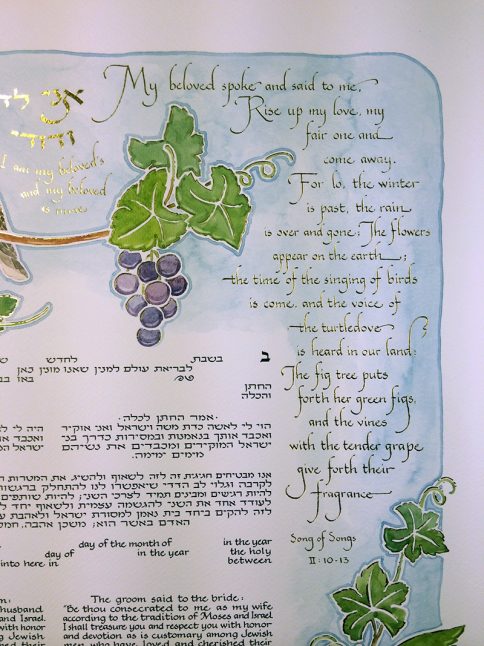 My beloved spoke and said to me,
Rise up my love, my
fair one and
come away.
For lo, the winter
is past, the rain
is over and gone; The flowers
appear on the earth;
the time of the singing of birds
is come, and the voice of
the turtledove
is heard in our land:
The fig tree puts
forth her green figs,
and the vines
with the tender grape
give forth their
fragrance
Song of Songs
II:10-13
אני לד
ודודי
I am my beloved's
and my beloved
is mine
ב בשבת לחדש
לבריאת עולם למנין שאנו מונין כאן
החתן
והכלה
אמר החתן לכלה·
הוי לי לאשה כדת משה וישראל ואני אוקיר
ואכבד אותך בנאמנות ובמסירות כדרך בני
ישראל המוקירים ומכבדים את נשיהם
מימים ימימה.
אנו מבטיחים חגיגית זה לזה לשאוף ולהשיג את המטרות
לקרבה וגלוי לב הדדי שיאפשרו לנו להתחלק
להיות רגישים ומבינים תמיד לצרכי השני; להיות שותפים
לעודד אחד את השני להגשמה עצמית ולשאוף יחד
לזה להקים ביחד בית נאמן למסורת ישראל ולאהבת
האדם באשר הוא; משכן אהבה,
day of the month of in the year
day of in the year the holy
into here in between
husband
and Israel.
with honor
Jewish
their
The groom said to the bride:
"Be thou consecrated to me as my wife
according to the tradition of Moses and Israel
I shall treasure you and respect you with honor
and devotion as is customary among Jewish
men who have loved and cherished their